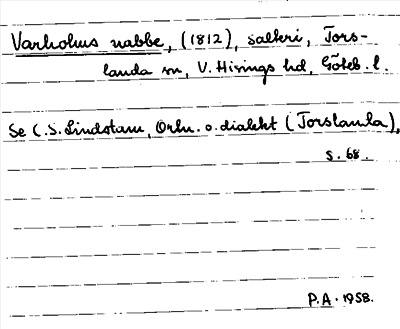 Varholms nabbe, (1812), salteri, Tors-
landa sn, V. Hisings hd, Göteb. l.
Se C. S. Lindstam, Ortn. o. dialekt (Torslanda),
s. 68.
P.A. 1958.